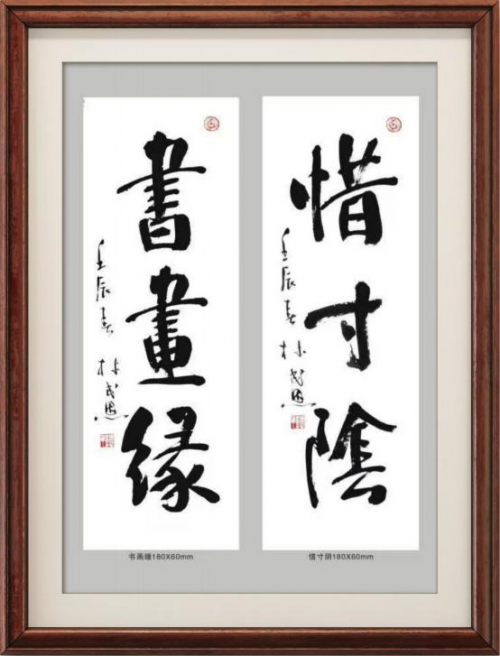 惜寸陰
壬辰春 林成恩
惜寸阴180X60mm
書畫緣
壬辰春 林成恩
书画缘180X60mm